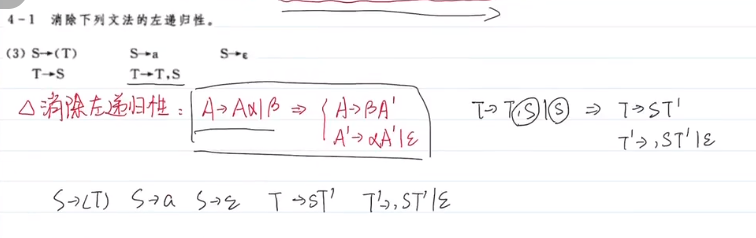 4-1 消除下列文法的左递归性。
(3) S→(T) S→a S→ε
T→S T→T,S
△消除左递归性: A→Aα|β ⇒ { A→βA' T→T,S|S ⇒ T→ST'
A'→αA'|ε T'→,ST'|ε
S→(T) S→a S→ε T→ST' T'→,ST'|ε